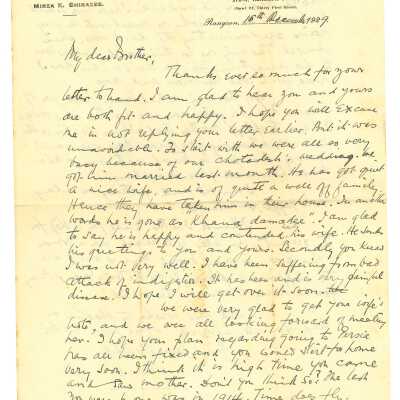 MIRZA K. SHIRAZEE.
Rangoon, 15th December 1929.
My dear Brother,
Thanks ever so much for your
letter to hand. I am glad to hear you and yours
are both fit and happy. I hope you will excuse
me in not replying your letter earlier. But it was
unavoidable. To start with we were all so very
busy because of our wedding. We
got him married last month. He has got quite
a nice wife, and is of quite a well off family,
Hence they have taken him in their house. In another
words he is gone as Khana damadee". I am glad
to say he is happy and contended his wife. He sends
his greetings to you and yours. Secondly you know
I was not very well. I have been suffering from bad
attack of indigestion. It has been and is very painful
disease. I hope I will get over it soon.
We were very glad to get your wife's
foto, and we are all looking forward of meeting
her. I hope your plan regarding going to Persia
has all been fixed and you
very soon. I think it is high time you came
and saw mother. Don't you think so? The last
you were home was in 1914. Time does fly